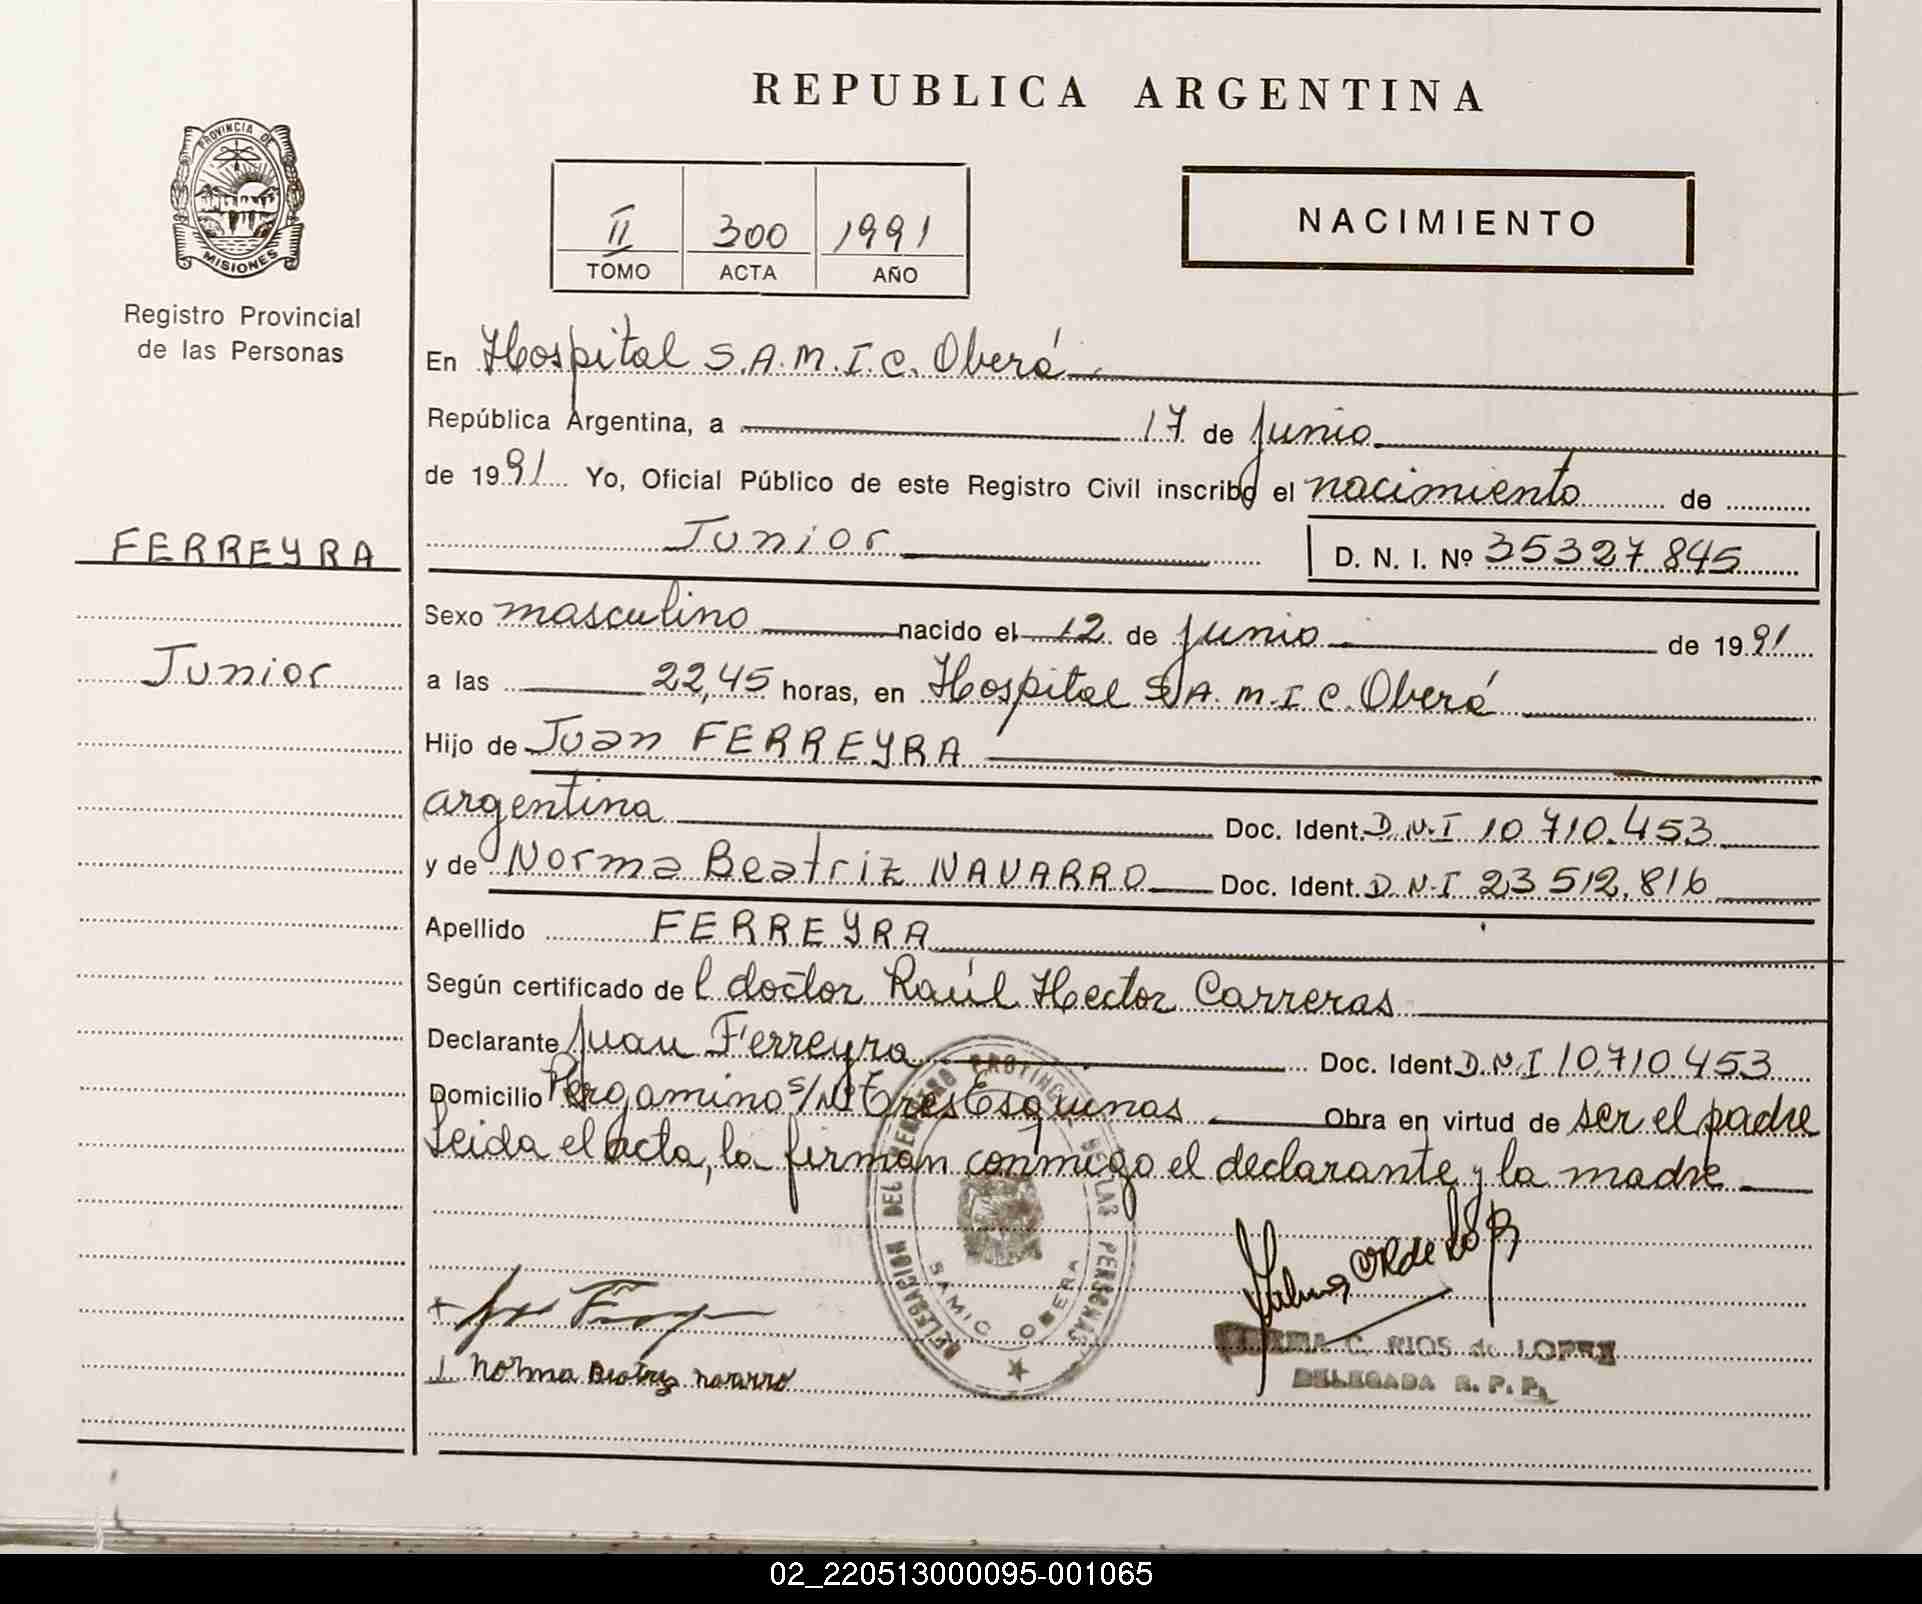 REPUBLICA ARGENTINA
PROVINCIA DE
MISIONES
Registro Provincial
de las Personas
FERREYRA
Junior
II 300 1991
TOMO ACTA AÑO
NACIMIENTO
En Hospital S.A.M.I.C. Oberá
República Argentina, a 17 de junio
de 1991 Yo, Oficial Público de este Registro Civil inscribo el nacimiento de
Junior D. N. I. Nº 35327845
Sexo masculino nacido el 12 de junio de 1991
a las 22,45 horas, en Hospital S.A.M.I.C. Oberá
Hijo de Juan FERREYRA
argentina Doc. Ident. D.N.I 10.710.453
y de Norma Beatriz NAVARRO Doc. Ident. D.N.I 23512.816
Apellido FERREYRA
Según certificado del doctor Raúl Hector Carreras
Declarante Juan Ferreyra Doc. Ident D.N.I 10710453
Domicilio Pergamino s/Nº Tres Esquinas Obra en virtud de ser el padre
Leida el acta, la firman conmigo el declarante y la madre
DELEGACION DEL REGISTRO PROVINCIAL DE LAS PERSONAS
SAMIC OBERA
Norma Beatriz navarro
C. RIOS de LOPEZ
DELEGADA R. P. P.
02_220513000095-001065